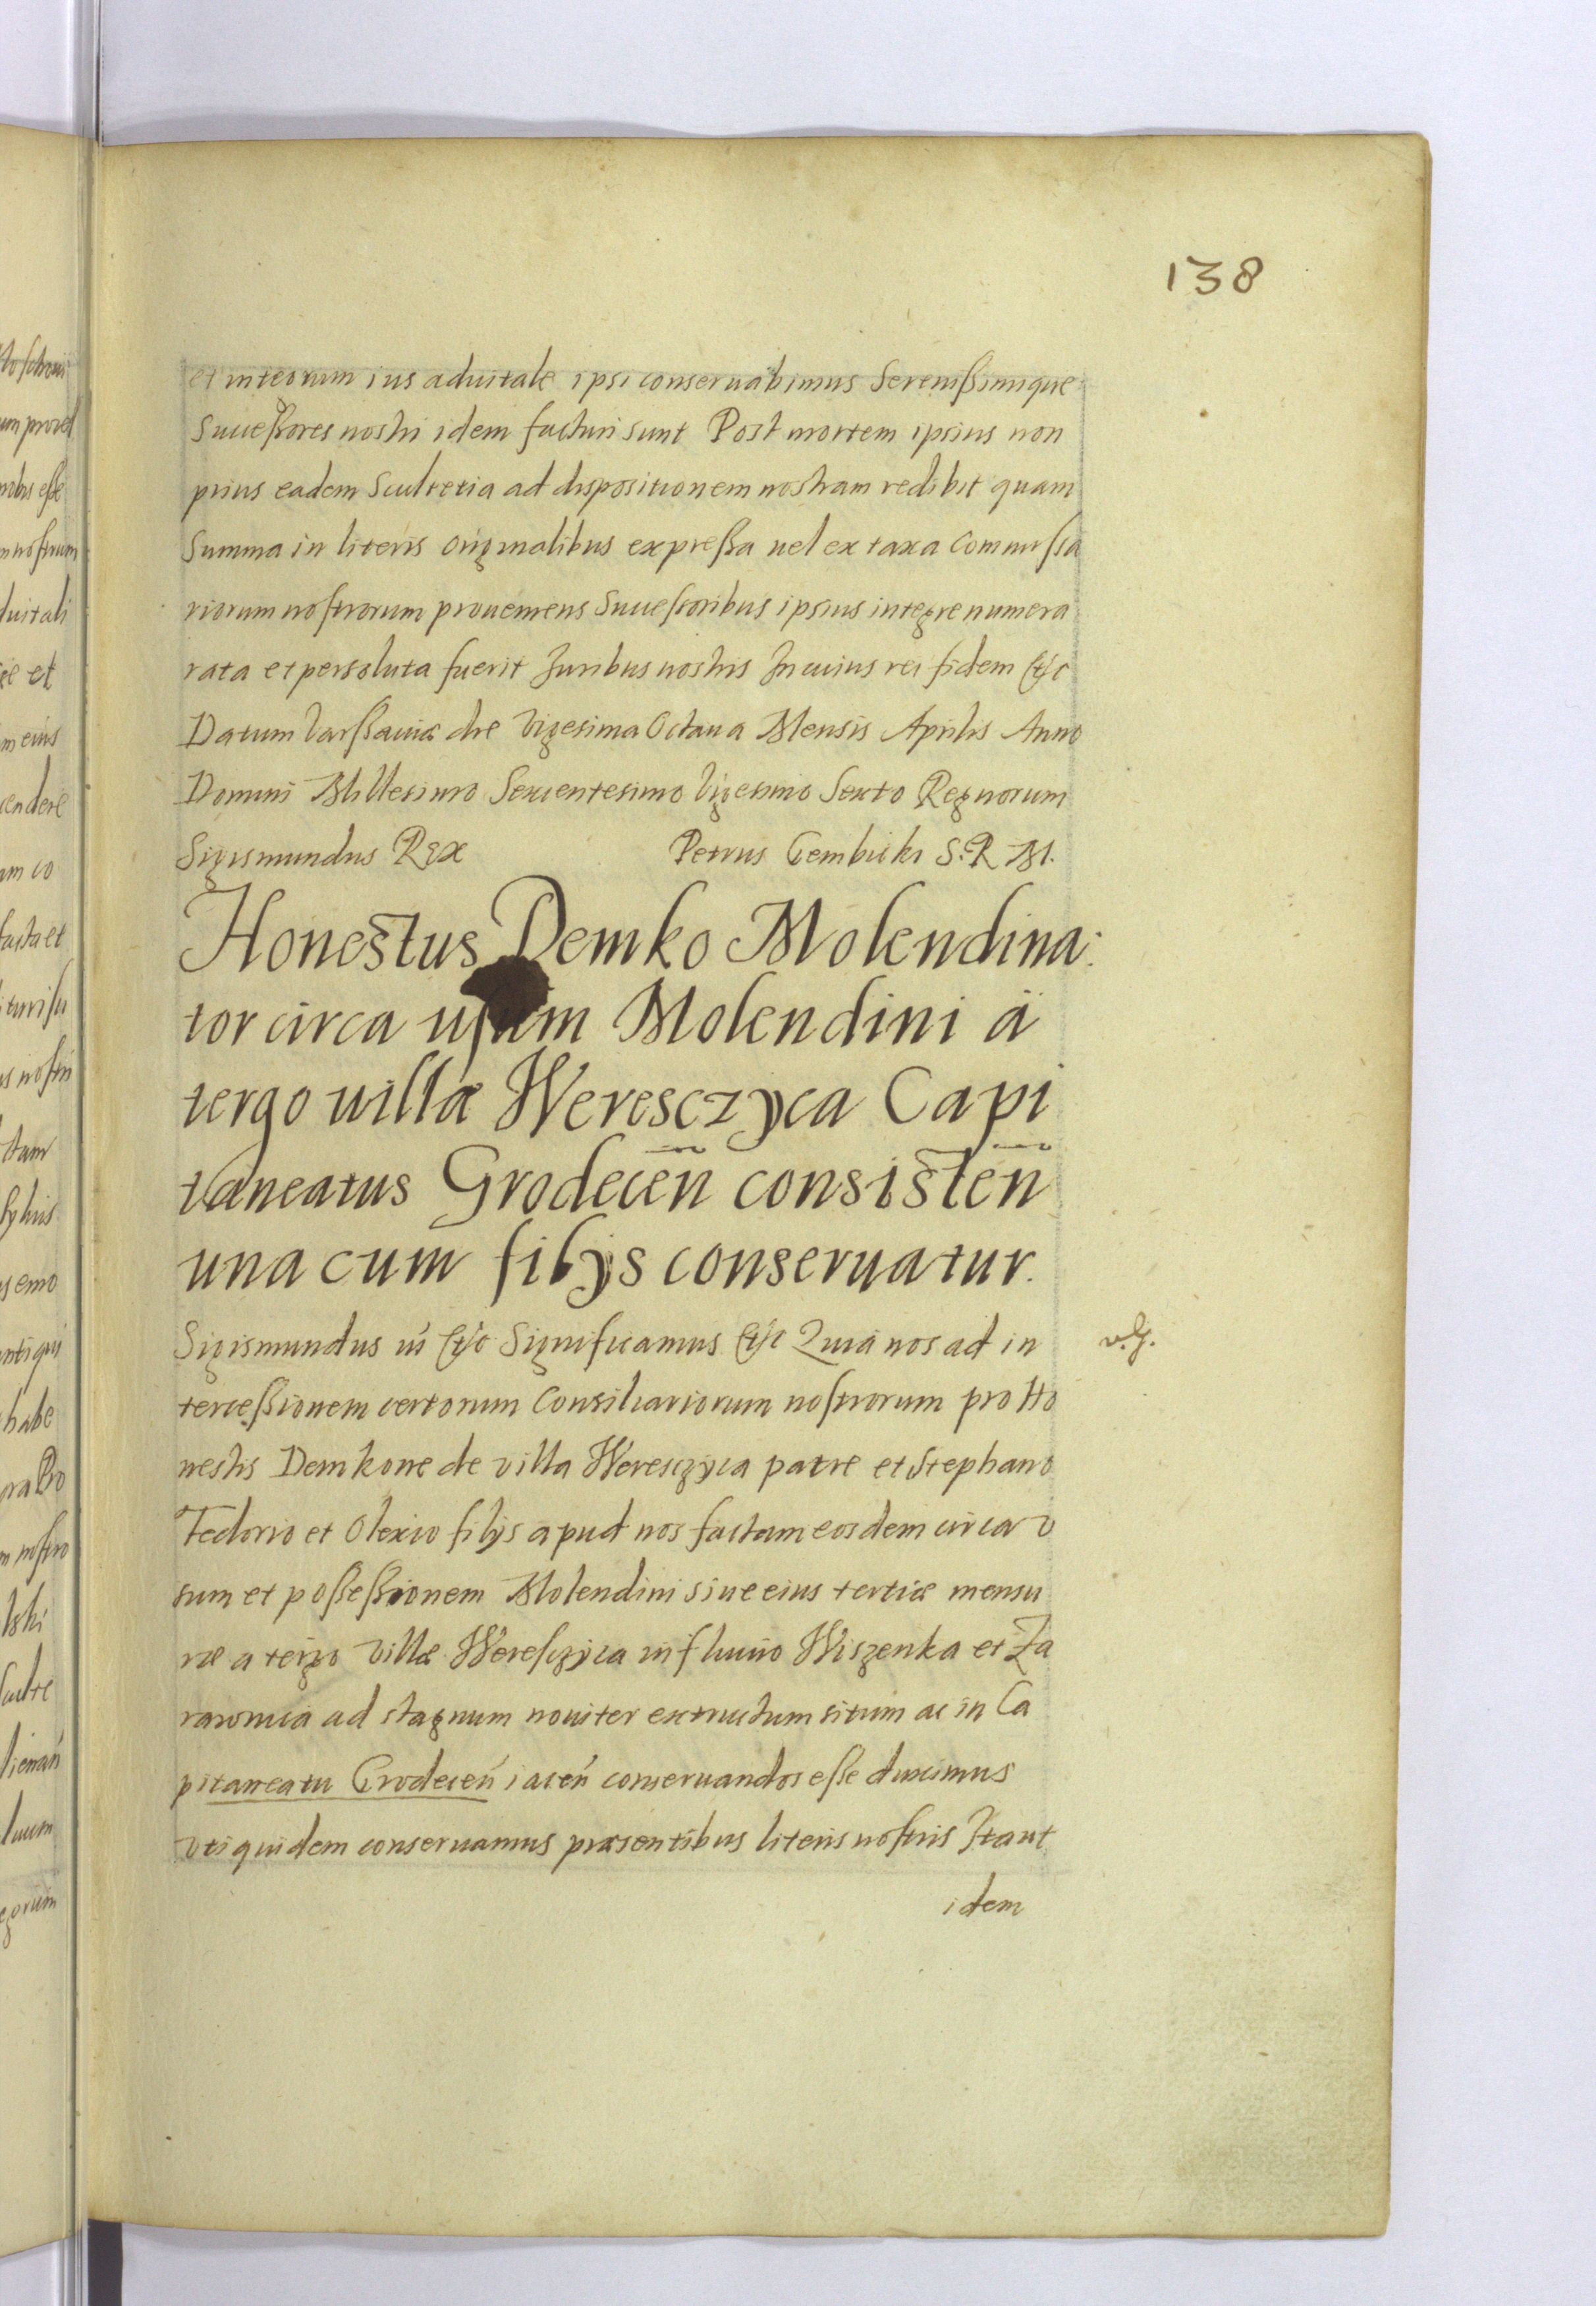 138
et integrum ius aduitale ipsi conseruabimus Serenißimique
Succeßores nostri idem facturi sunt Post mortem ipsius non
prius eadem Scultetia ad dispositionem nostram redibit quam
Summa in literis originalibus expreßa uel ex taxa Commissa
riorum nostrorum proueniens Successoribus ipsius integre numera
rata et persoluta fuerit Juribus nostris In cuius rei fidem etc
Datum Varßauiæ die Vigesima Octaua Mensis Aprilis Anno
Domini Millesimo Sexcentesimo Vigesimo Sexto Regnorum
Sigismundus Rex Petrus Gembicki S. R. M.
Honestus Demko Molendina:
tor circa usum Molendini à
tergo uillæ Weresczyca Capi
taneatus Grodecen̄ consisten̄
una cum filijs conseruatur.
Sigismundus etc Significamus etc Quia nos ad in
v.g.
terceßionem certorum Consiliariorum nostrorum pro Ho
nestis Demkone de villa Weresczyca patre et Stephano
Fedorio et Olexio filijs apud nos factam eosdem circa v
sum et poßeßionem Molendini siue eius tertiæ mensu
ræ a tergo villæ Weresczyca in fluuio Wiszenka et Za
ad stagnum nouiter extructum situm ac in Ca
pitaneatu Grodecen̄ iacen̄ conseruandos esse duximus
vti quidem conseruamus præsentibus literis nostris Ita ut
idem